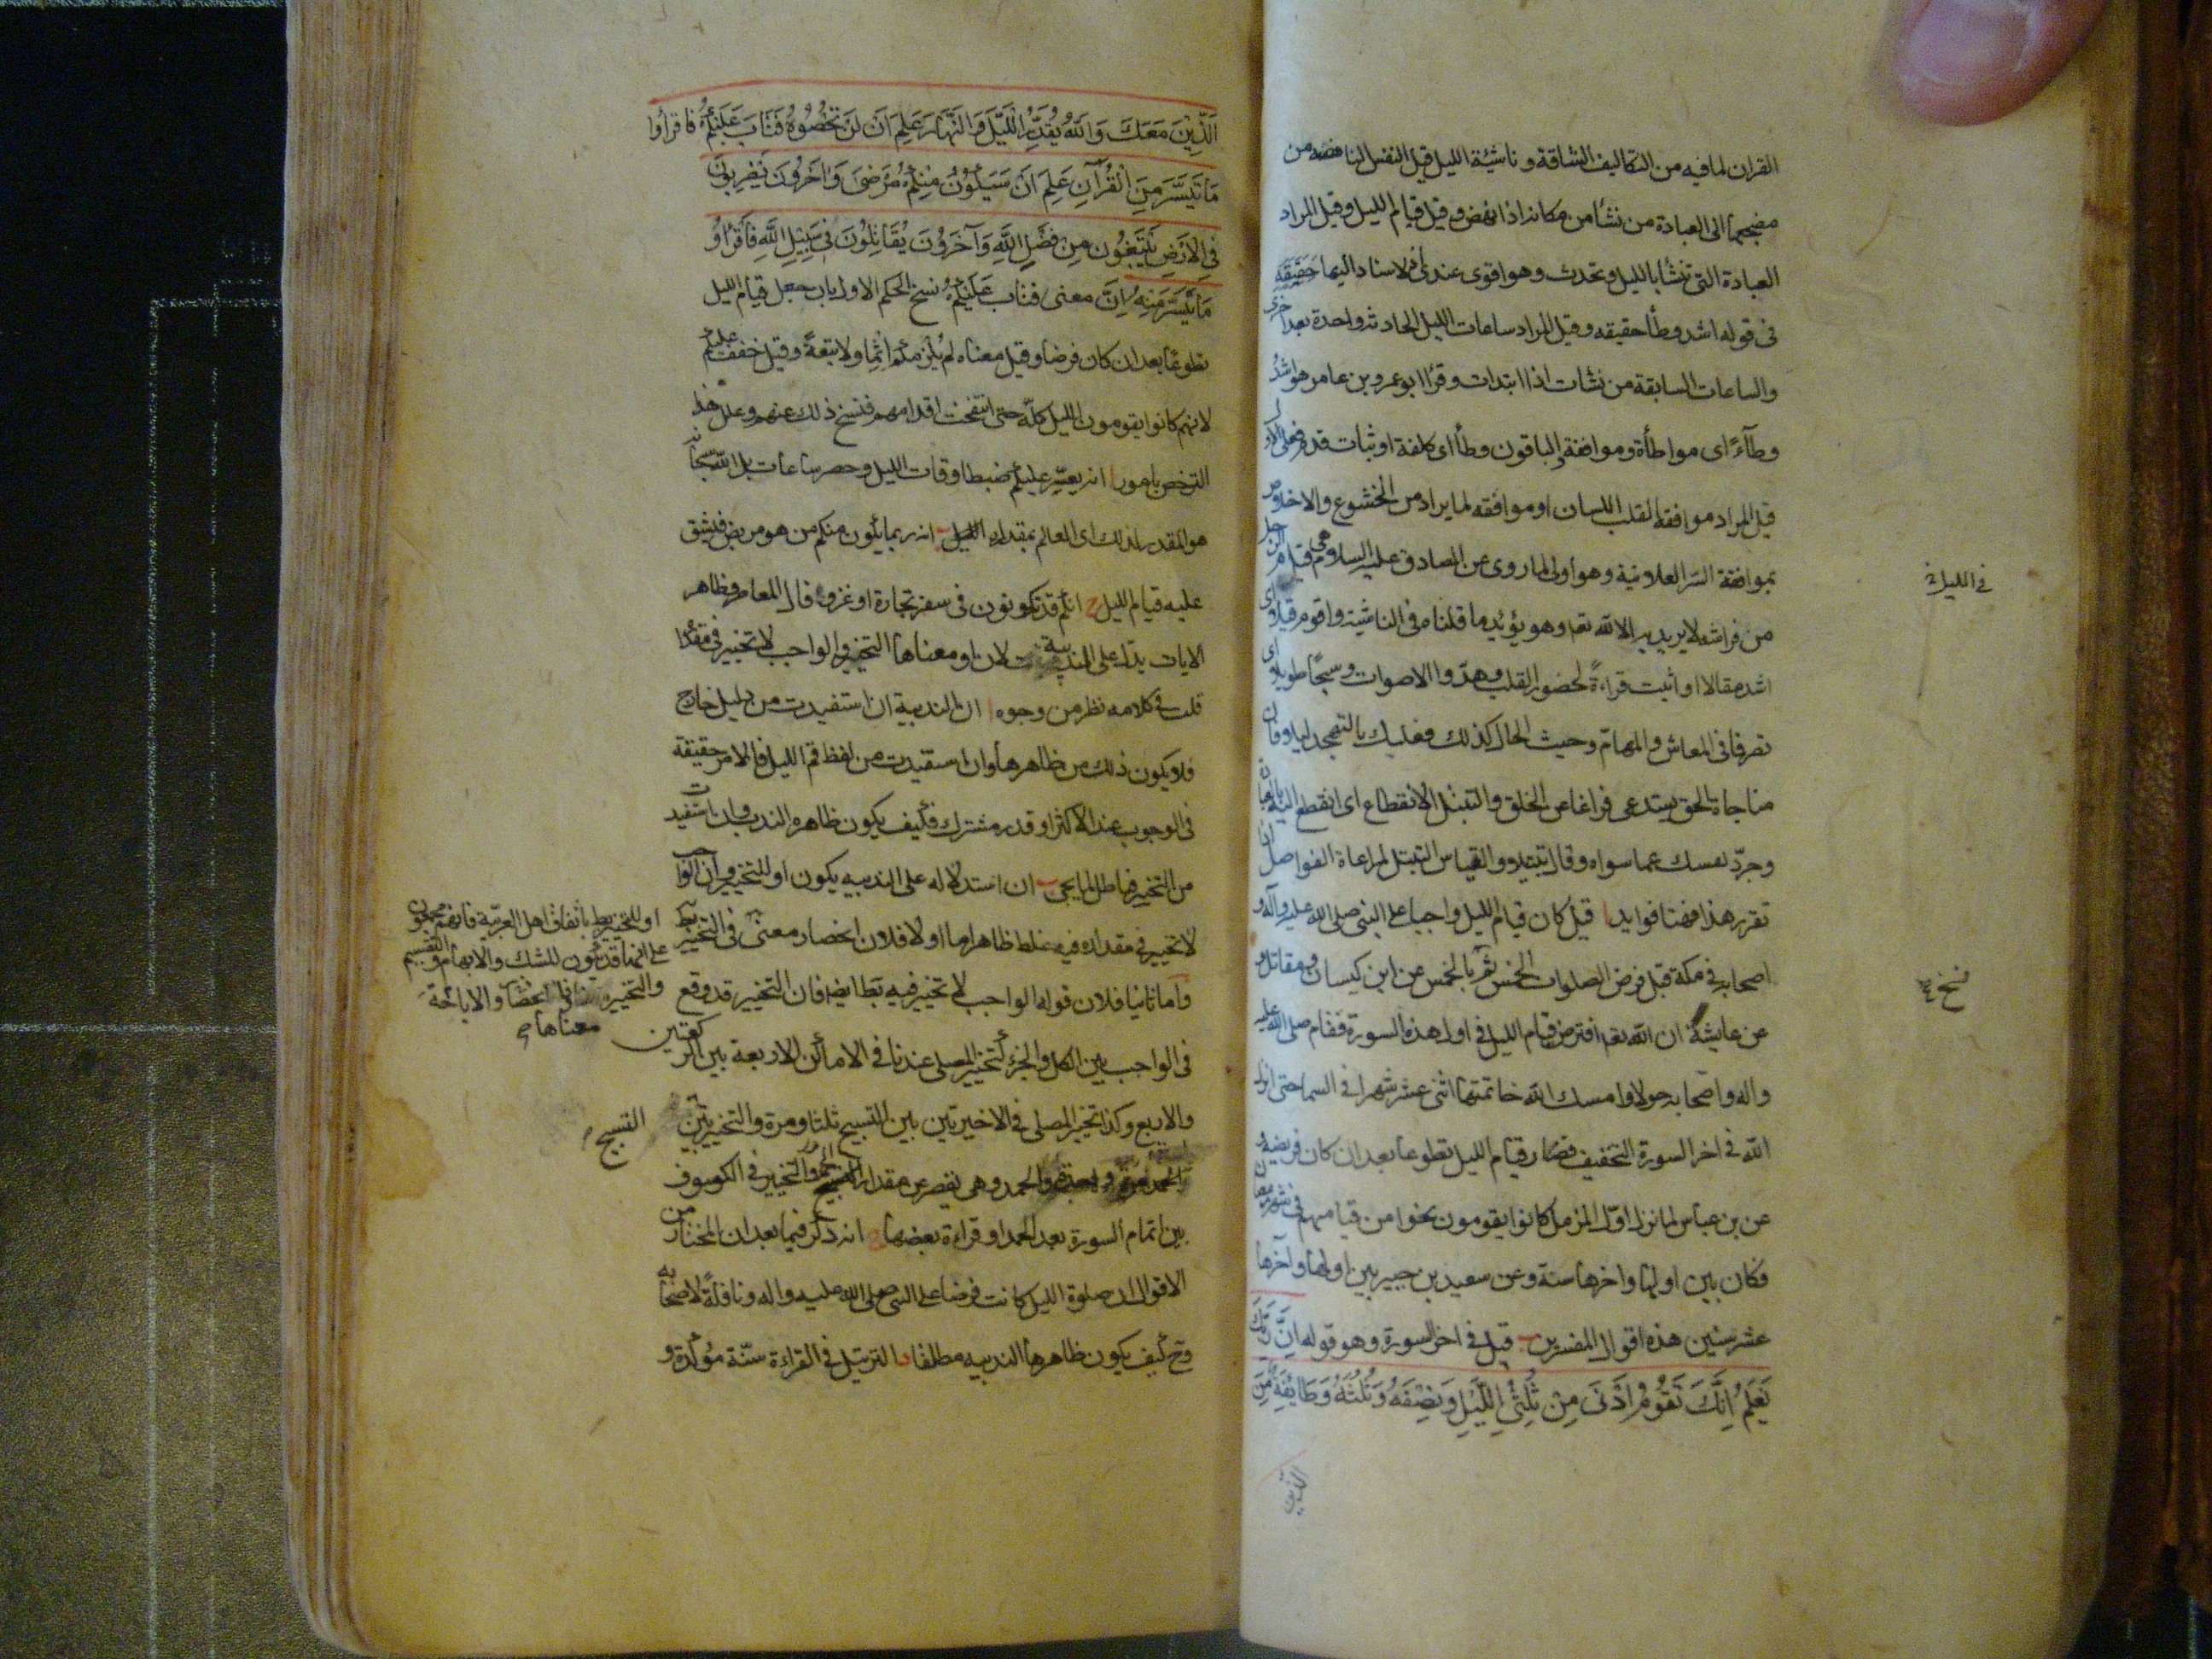 القران لما فيه من التكاليف الشاقة و ناشئة الليل قيل النفس الناهضه من
مضجعها الى العبادة من نشأ من مكانه اذا نهض و قيل قيام الليل و قيل المراد
العبادة التى تنشأ بالليل و تحدث و هو اقوى عندى فالاسناد اليها حقيقة
فى قوله اشد وطأ حقيقه و قيل المراد ساعات الليل الحادثه واحدة بعد اخرى
والساعات السابقة من نشأت اذا ابتدات و قرا ابو عمرو بن عامر هو اشدّ
وطآءً اى مواطأة و موافقة و الباقون وطأ اى كلفة او ثبات قدم فعلى الاول
قيل المراد موافقة القلب اللسان او موافقه لما يراد من الخشوع والاخلاص
بموافقة السر العلانية و هو اولى لما روى عن الصادق عليه السلام هى قيام الرجل
فى الليل
من فراشه لا يريد به الا الله تعا و هو يؤيد ما قلناه فى الناشية و اقوم قيلا اى
اشد مقالا او اثبت قراءةً لحضور القلب و هدو الاصوات و سبحًا طويلا اى
تصرفا فى المعاش و المهامّ و حيث الحال كذلك فعليك بالتهجد ليلا فان
مناجاة الحق يستدعى فراغا عن الخلق و التبتل الانقطاع اى انقطع اليه بالعبادة
و جرّد نفسك عما سواه و قال تبتيلا و القياس التبتل لمراعاة الفواصل اذا
تقرر هذا فهنا فوايد ا قيل كان قيام الليل واجبا على النبى صلى الله عليه وآله و
اصحابه فى مكة قبل فرض الصلوات الخمس ثم بالخمس عن ابن كيسان و مقاتل و
نسخ
عن عايشة ان الله تعا افترض قيام الليل فى اول هذه السورة فقام صلى الله عليه
واله و اصحابه حولا و امسك الله خاتمتها اثنى عشر شهرا فى السما حتى انزل
الله فى اخر السورة التخفيف فصار قيام الليل تطوعا بعد ان كان فريضه و
عن بن عباس لما نزل اوّل المزمل كانوا يقومون نحوا من قيامهم فى شهر رمضان
فكان بين اولها و اخرها سنة و عن سعيد بن جبير بين اولها و آخرها
عشر سنين هذه اقوال المفسرين ب قيل فى اخر السورة و هو قوله اِنَّ رَبَّكَ
يَعلَمُ اِنَّكَ تَقُومُ اَدْنَى مِنْ ثُلُثَىِ اللَّيْلِ وَ نِصْفَهُ وَ ثُلُثَهُ وَ طَائِفَةٌ مِنَ
الذين
الَّذِينَ مَعَكَ وَاللهُ يُقَدِّرُ اللَّيْلَ وَ النَّهَارَ عَلِمَ اَنْ لَنْ تُحْصُوهُ فَتَابَ عَلَيْكُمْ فَاقْرَأوا
مَا تَيَسَّرَ مِنَ الْقُرْآنِ عَلِمَ اَنْ سَيَكُونُ مِنْكُمْ مَرْضَى وَ اَخَرُونَ يَضْرِبُونَ
فِى الْاَرْضِ يَبْتَغُونَ مِنْ فَضْلِ اللَّهِ وَ آخَرُونَ يُقَاتِلُونَ فِى سَبِيلِ اللَّهِ فَاقْرَأوُ
مَا تَيَسَّرَ مِنْهُ اِنَّ معنى فتاب عليكم نسخ الحكم الاول بان جعل قيام الليل
تطوعًا بعد ان كان فرضا و قيل معناه لم يلزمكم اثما و لا تبعةً و قيل خفف عليكم
لانهم كانوا يقومون الليل كلّه حتى انتفخت اقدامهم فنسخ ذلك عنهم و علل هذا
الترخص بامور ا انه يعسر عليكم ضبط اوقات الليل و حصر ساعات بل الله سبحانه
هو المقدر لذلك اى العالم بمقدار الليل ب انه ربما يكون منكم من هو مريض فيشق
عليه قيام الليل ج انكم قد تكونون فى سفر تجارة او غزو قال المعاصر ظاهر
الايات يدل على الندبية لان او معناها التخيير و الواجب لا تخيير فى مقداره
قلت فى كلامه نظر من وجوه ا ان الندبية ان استفيدت من دليل خارج
فلا يكون ذلك من ظاهرها و ان استفيدت من لفظ قم الليل فالامر حقيقة
فى الوجوب عند الاكثر او قدر مشترك فكيف يكون ظاهره الندب و ان استفيدت
من التخيير فباطل لما يجى ب ان استدلاله على الندبيه بكون او للتخيير و ان الواجب
لا تخيير فى مقداره فيه غلط ظاهر اما اولا فلان انحصار معنى او فى التخيير بط
او للتخيير بط باتفاق اهل العربيّة فانهم مجمعون
على انها قد تكون للشك و الابهام و التقسيم
و التخيير و الاباحة
معناها
و اما ثانيا فلان قوله الواجب لا تخيير فيه بط ايضا فان التخيير قد وقع
فى الواجب بين الكل و الجزء كتخيير المصلى عندنا فى الاماكن الاربعة بين الركعتين
والاربع و كذا تخيير المصلى فى الاخيرتين بين التسبيح ثلثا و مرة و التخيير بين
التسبيح
و الحمد و هى تقصر عن مقدار التسبيح و التخيير فى الكسوف
بين اتمام السورة بعد الحمد او قراءة بعضها ج انه ذكر فيما بعد ان المختار من
الاقوال ان صلوة الليل كانت فرضا على النبى صلى الله عليه واله و نافلةً لاصحابه
و ح كيف يكون ظاهرها الندبيه مطلقا د الترتيل فى القراءة سنّة مؤكدة و